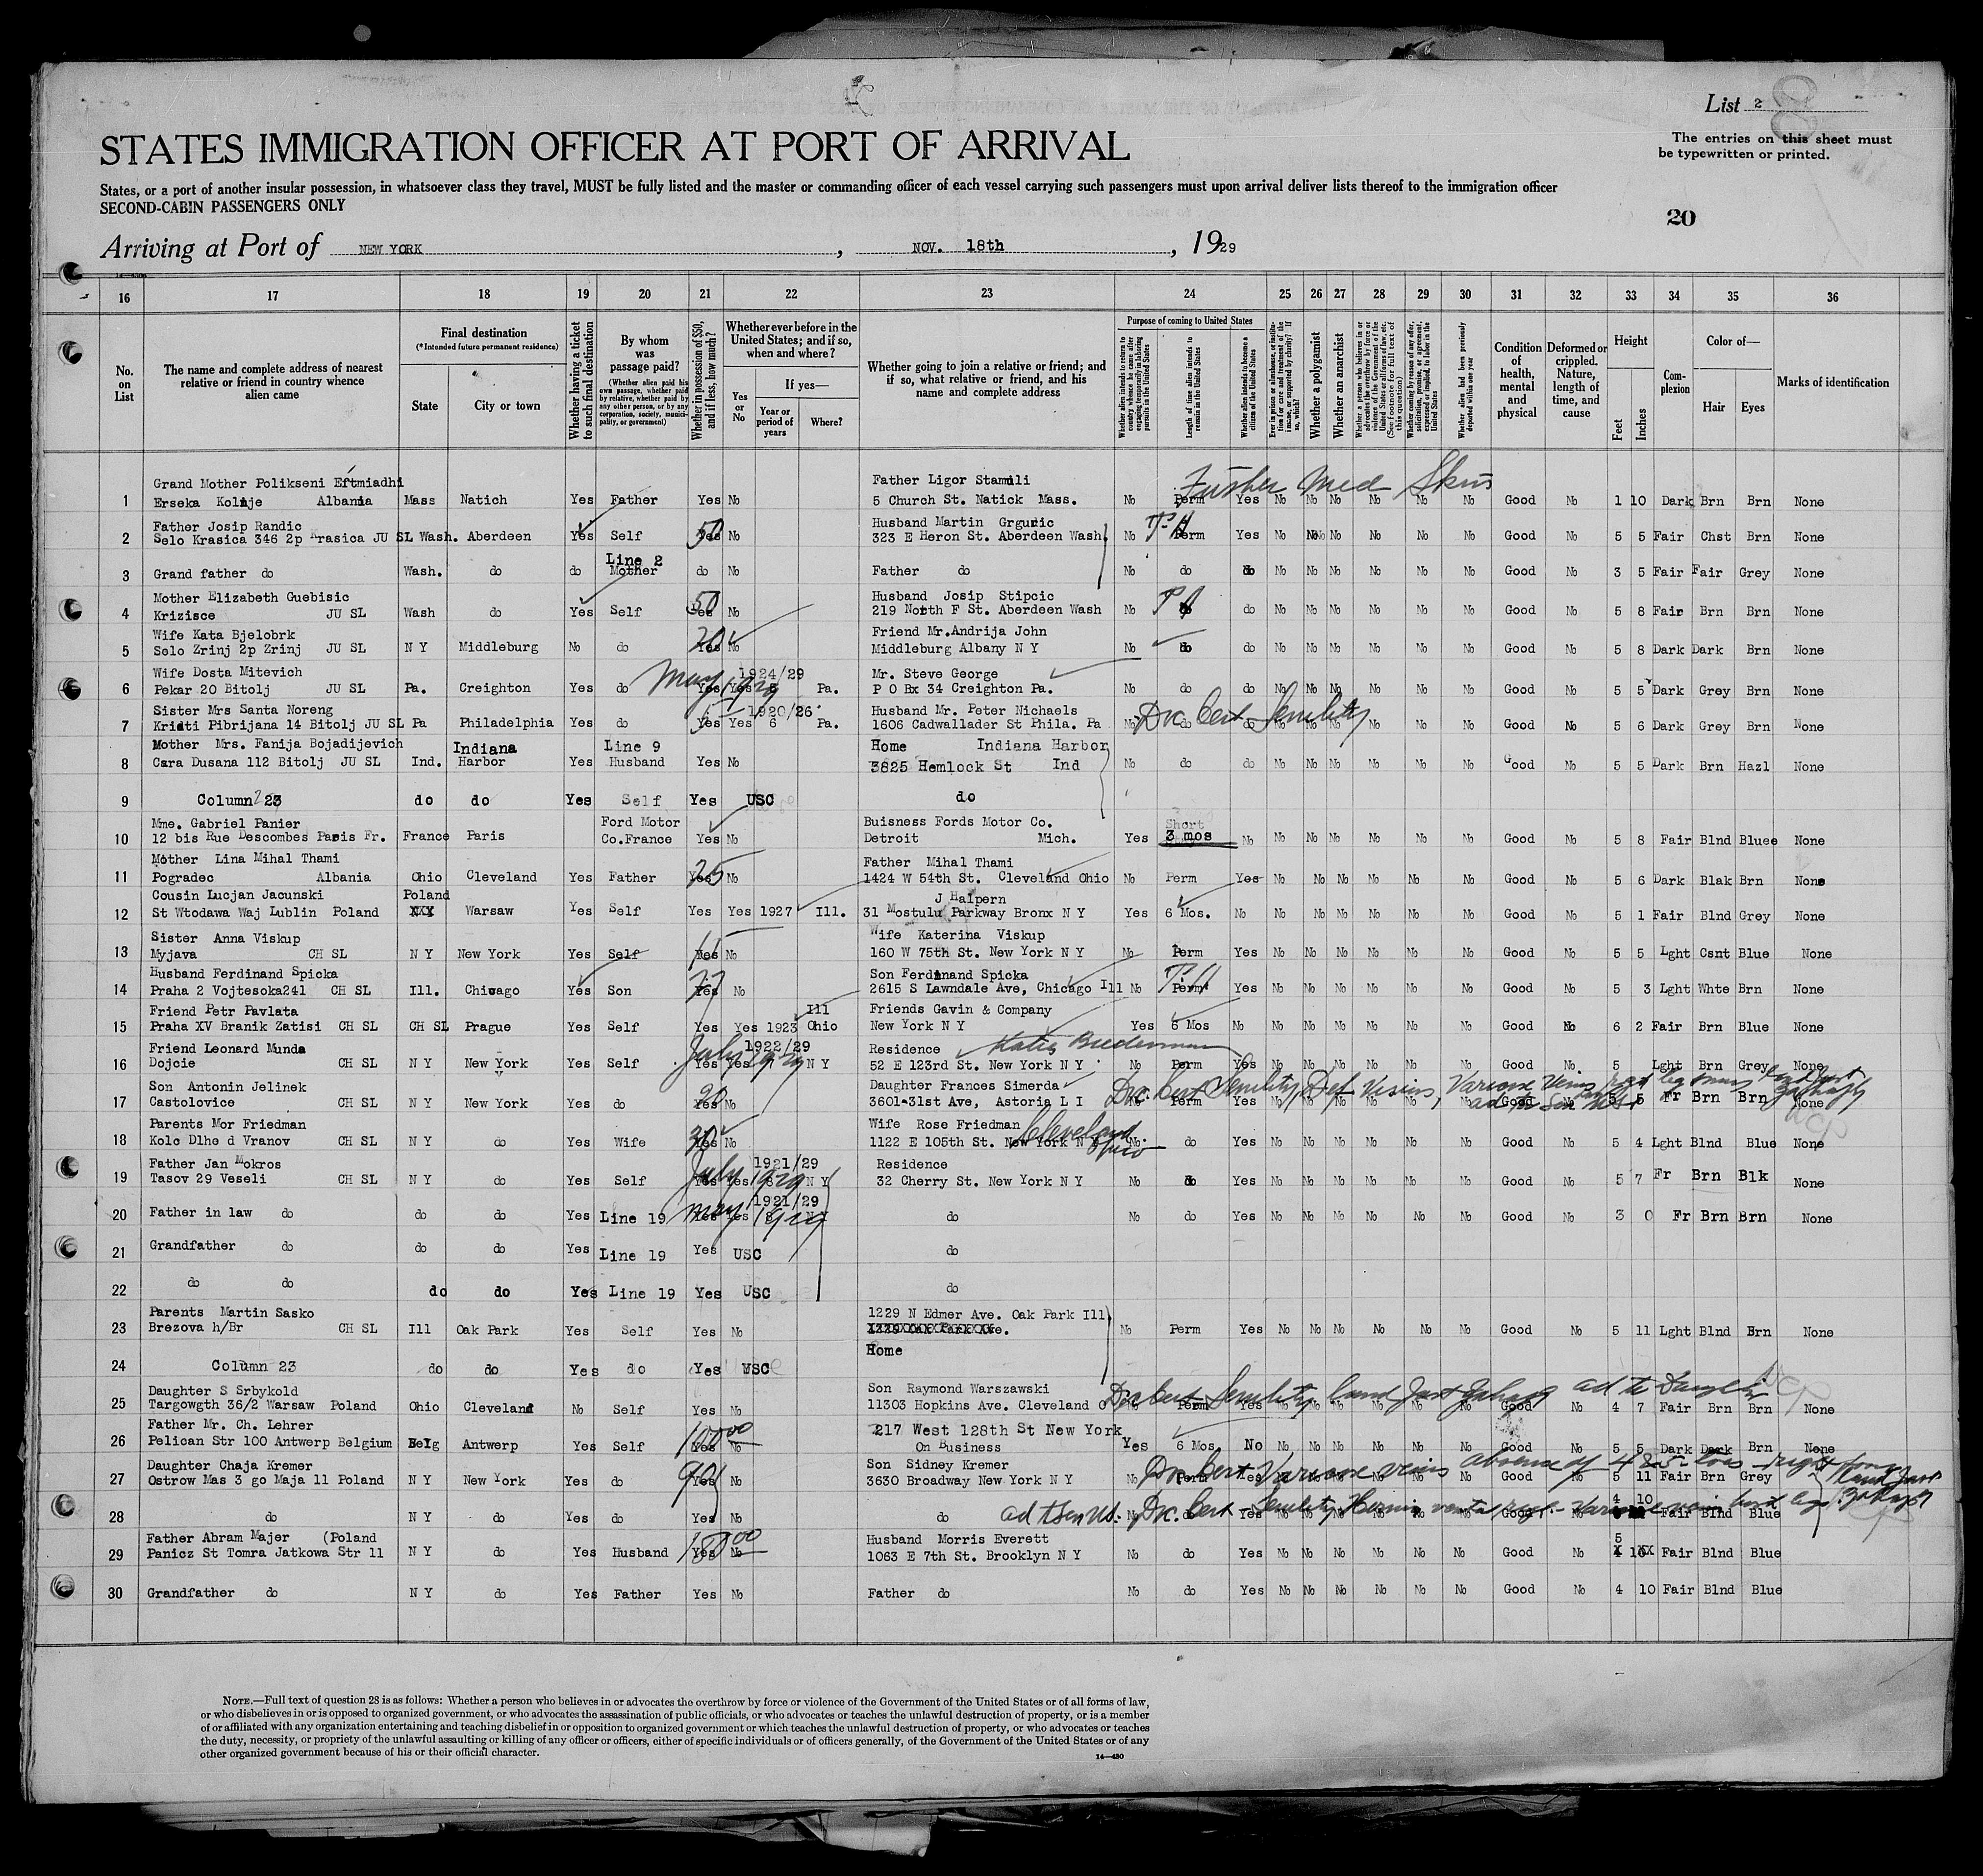 List 2
The entries on this sheet must
be typewritten or printed.
STATES IMMIGRATION OFFICER AT PORT OF ARRIVAL
States, or a port of another insular possession, in whatsoever class they travel, MUST be fully listed and the master or commanding officer of each vessel carrying such passengers must upon arrival deliver lists thereof to the immigration officer
SECOND-CABIN PASSENGERS ONLY
20
Arriving at Port of NEW YORK , NOV. 18th , 1929
16 17 18 19 20 21 22 23 24 25 26 27 28 29 30 31 32 33 34 35 36
No. on List
The name and complete address of nearest relative or friend in country whence alien came
Final destination
(*Intended future permanent residence)
State City or town
Whether having a ticket to such final destination
By whom was passage paid?
(Whether alien paid his own passage, whether paid by relative, whether paid by any other person, or by any corporation, society, municipality, or government)
Whether in possession of $50, and if less, how much?
Whether ever before in the United States; and if so, when and where?
Yes or No
If yes—
Year or period of years
Where?
Whether going to join a relative or friend; and if so, what relative or friend, and his name and complete address
Purpose of coming to United States
Length of time alien intends to remain in the United States
Whether alien intends to become a citizen of the United States
Whether a polygamist
Whether an anarchist
Condition of health, mental and physical
Deformed or crippled. Nature, length of time, and cause
Height
Feet Inches
Complexion
Color of—
Hair Eyes
Marks of identification
Grand Mother Polikseni Eftmiadhi Father Ligor Stamili
1 Erseka Kolnje Albania Mass Natich Yes Father Yes No 5 Church St. Natick Mass. No Perm Yes No No No No No No Good No 1 10 Dark Brn Brn None
Father Josip Randic Husband Martin Grguric
2 Selo Krasica 346 2p Krasica JU SL Wash. Aberdeen Yes Self 50 Yes No 323 E Heron St. Aberdeen Wash. No Perm Yes No No No No No No Good No 5 5 Fair Chst Brn None
Line 2
3 Grand father do Wash. do do Mother do No Father do No do do No No No No No No Good No 3 5 Fair Fair Grey None
Mother Elizabeth Guebisic Husband Josip Stipcic
4 Krizisce JU SL Wash do Yes Self 50 Yes No 219 North F St. Aberdeen Wash No do do No No No No No No Good No 5 8 Fair Brn Brn None
Wife Kata Bjelobrk Friend Mr.Andrija John
5 Selo Zrinj 2p Zrinj JU SL N Y Middleburg No do 20 Yes No Middleburg Albany N Y No do do No No No No No No Good No 5 8 Dark Dark Brn None
Wife Dosta Mitevich 1924/29 Mr. Steve George
6 Pekar 20 Bitolj JU SL Pa. Creighton Yes do May 1929 Yes Yes Pa. P O Bx 34 Creighton Pa. No do do No No No No No No Good No 5 5 Dark Grey Brn None
Sister Mrs Santa Noreng 1920/26 Husband Mr. Peter Nichaels
7 Kridti Pibrijana 14 Bitolj JU SL Pa Philadelphia Yes do Yes Yes 6 Pa. 1606 Cadwallader St Phila. Pa No do do No No No No No No Good No 5 6 Dark Grey Brn None
Dr. cert Senility
Mother Mrs. Fanija Bojadijevich Indiana Line 9 Home Indiana Harbor
8 Cara Dusana 112 Bitolj JU SL Ind. Harbor Yes Husband Yes No 3825 Hemlock St Ind No do do No No No No No No Good No 5 5 Dark Brn Hazl None
9 Column 23 do do Yes Self Yes USC do
Mme. Gabriel Panier Ford Motor Buisness Fords Motor Co. Short
10 12 bis Rue Descombes Paris Fr. France Paris Co.France Yes No Detroit Mich. Yes 3 mos No No No No No No No Good No 5 8 Fair Blnd Bluee None
Mother Lina Mihal Thami Father Mihal Thami
11 Pogradec Albania Ohio Cleveland Yes Father 25 Yes No 1424 W 54th St. Cleveland Ohio No Perm Yes No No No No No No Good No 5 6 Dark Blak Brn None
Cousin Lucjan Jacunski Poland J Halpern
12 St Wtodawa Waj Lublin Poland Warsaw Yes Self Yes Yes 1927 Ill. 31 Mostulu Parkway Bronx N Y Yes 6 Mos. No No No No No No No Good No 5 1 Fair Blnd Grey None
Sister Anna Viskup Wife Katerina Viskup
13 Myjava CH SL N Y New York Yes Self Yes No 160 W 75th St. New York N Y No Perm Yes No No No No No No Good No 5 5 Lght Csnt Blue None
Husband Ferdinand Spicka Son Ferdinand Spicka
14 Praha 2 Vojtesoka241 CH SL Ill. Chicago Yes Son Yes No 2615 S Lawndale Ave, Chicago Ill No Perm Yes No No No No No No Good No 5 3 Lght Whte Brn None
Friend Petr Pavlata Ill Friends Gavin & Company
15 Praha XV Branik Zatisi CH SL CH SL Prague Yes Self Yes Yes 1923 Ohio New York N Y Yes 6 Mos No No No No No No No Good No 6 2 Fair Brn Blue None
Friend Leonard Munda 1922/29 Residence
16 Dojcie CH SL N Y New York Yes Self July 1929 Yes Yes N Y 52 E 123rd St. New York N Y No Perm Yes No No No No No No Good No 5 Lght Brn Grey None
Son Antonin Jelinek Daughter Frances Simerda
17 Castolovice CH SL N Y New York Yes do 20 Yes No 3601-31st Ave, Astoria L I No Perm Yes No No No No No No Good No 5 5 Fr Brn Brn None
Dr. cert Senility, Def Vision, Varicose Veins
Parents Mor Friedman Wife Rose Friedman Cleveland
18 Kolc Dlhe d Vranov CH SL N Y do Yes Wife Yes No 1122 E 105th St. New York N Y No do Yes No No No No No No Good No 5 4 Lght Blnd Blue None
Father Jan Mokros 1921/29 Residence
19 Tasov 29 Veseli CH SL N Y do Yes Self July 1929 Yes Yes N Y 32 Cherry St. New York N Y No do Yes No No No No No No Good No 5 7 Fr Brn Blk None
1921/29
20 Father in law do do do Yes Line 19 May 1929 Yes Yes N Y do No do Yes No No No No No No Good No 3 0 Fr Brn Brn None
21 Grandfather do do do Yes Line 19 Yes USC do
22 do do do do Yes Line 19 Yes USC do
Parents Martin Sasko 1229 N Edmer Ave. Oak Park Ill
23 Brezova h/Br CH SL Ill Oak Park Yes Self Yes No No Perm Yes No No No No No No Good No 5 11 Lght Blnd Brn None
Home
24 Column 23 do do Yes do Yes USC
Daughter S Srbykold Son Raymond Warszawski
25 Targowgth 36/2 Warsaw Poland Ohio Cleveland No Self Yes No 11303 Hopkins Ave. Cleveland O No Perm Yes No No No No No No Good No 4 7 Fair Brn Brn None
Father Mr. Ch. Lehrer 217 West 128th St New York
26 Pelican Str 100 Antwerp Belgium Belg Antwerp Yes Self 100 00 Yes No On Business Yes 6 Mos No No No No No No No Good No 5 5 Dark Dark Brn None
Daughter Chaja Kremer Son Sidney Kremer
27 Ostrow Mas 3 go Maja 11 Poland N Y New York Yes do 90 Yes No 3630 Broadway New York N Y No Perm Yes No No No No No No Good No 5 11 Fair Brn Grey
Dr. cert Varicose veins absence of 4 & 5 toes right
4 10
28 do N Y do Yes do Yes No do No do Yes No No No No No No Good No Fair Blnd Blue
Dr. cert Senility Hernia
Father Abram Majer (Poland Husband Morris Everett 5
29 Panicz St Tomra Jatkowa Str 11 N Y do Yes Husband Yes No 1063 E 7th St. Brooklyn N Y No do Yes No No No No No No Good No Fair Blnd Blue
30 Grandfather do N Y do Yes Father Yes No Father do No do Yes No No No No No No Good No 4 10 Fair Blnd Blue
NOTE.—Full text of question 28 is as follows: Whether a person who believes in or advocates the overthrow by force or violence of the Government of the United States or of all forms of law,
or who disbelieves in or is opposed to organized government, or who advocates the assassination of public officials, or who advocates or teaches the unlawful destruction of property, or is a member
of or affiliated with any organization entertaining and teaching disbelief in or opposition to organized government or which teaches the unlawful destruction of property, or who advocates or teaches
the duty, necessity, or propriety of the unlawful assaulting or killing of any officer or officers, either of specific individuals or of officers generally, of the Government of the United States or of any
other organized government because of his or their official character.
14—430